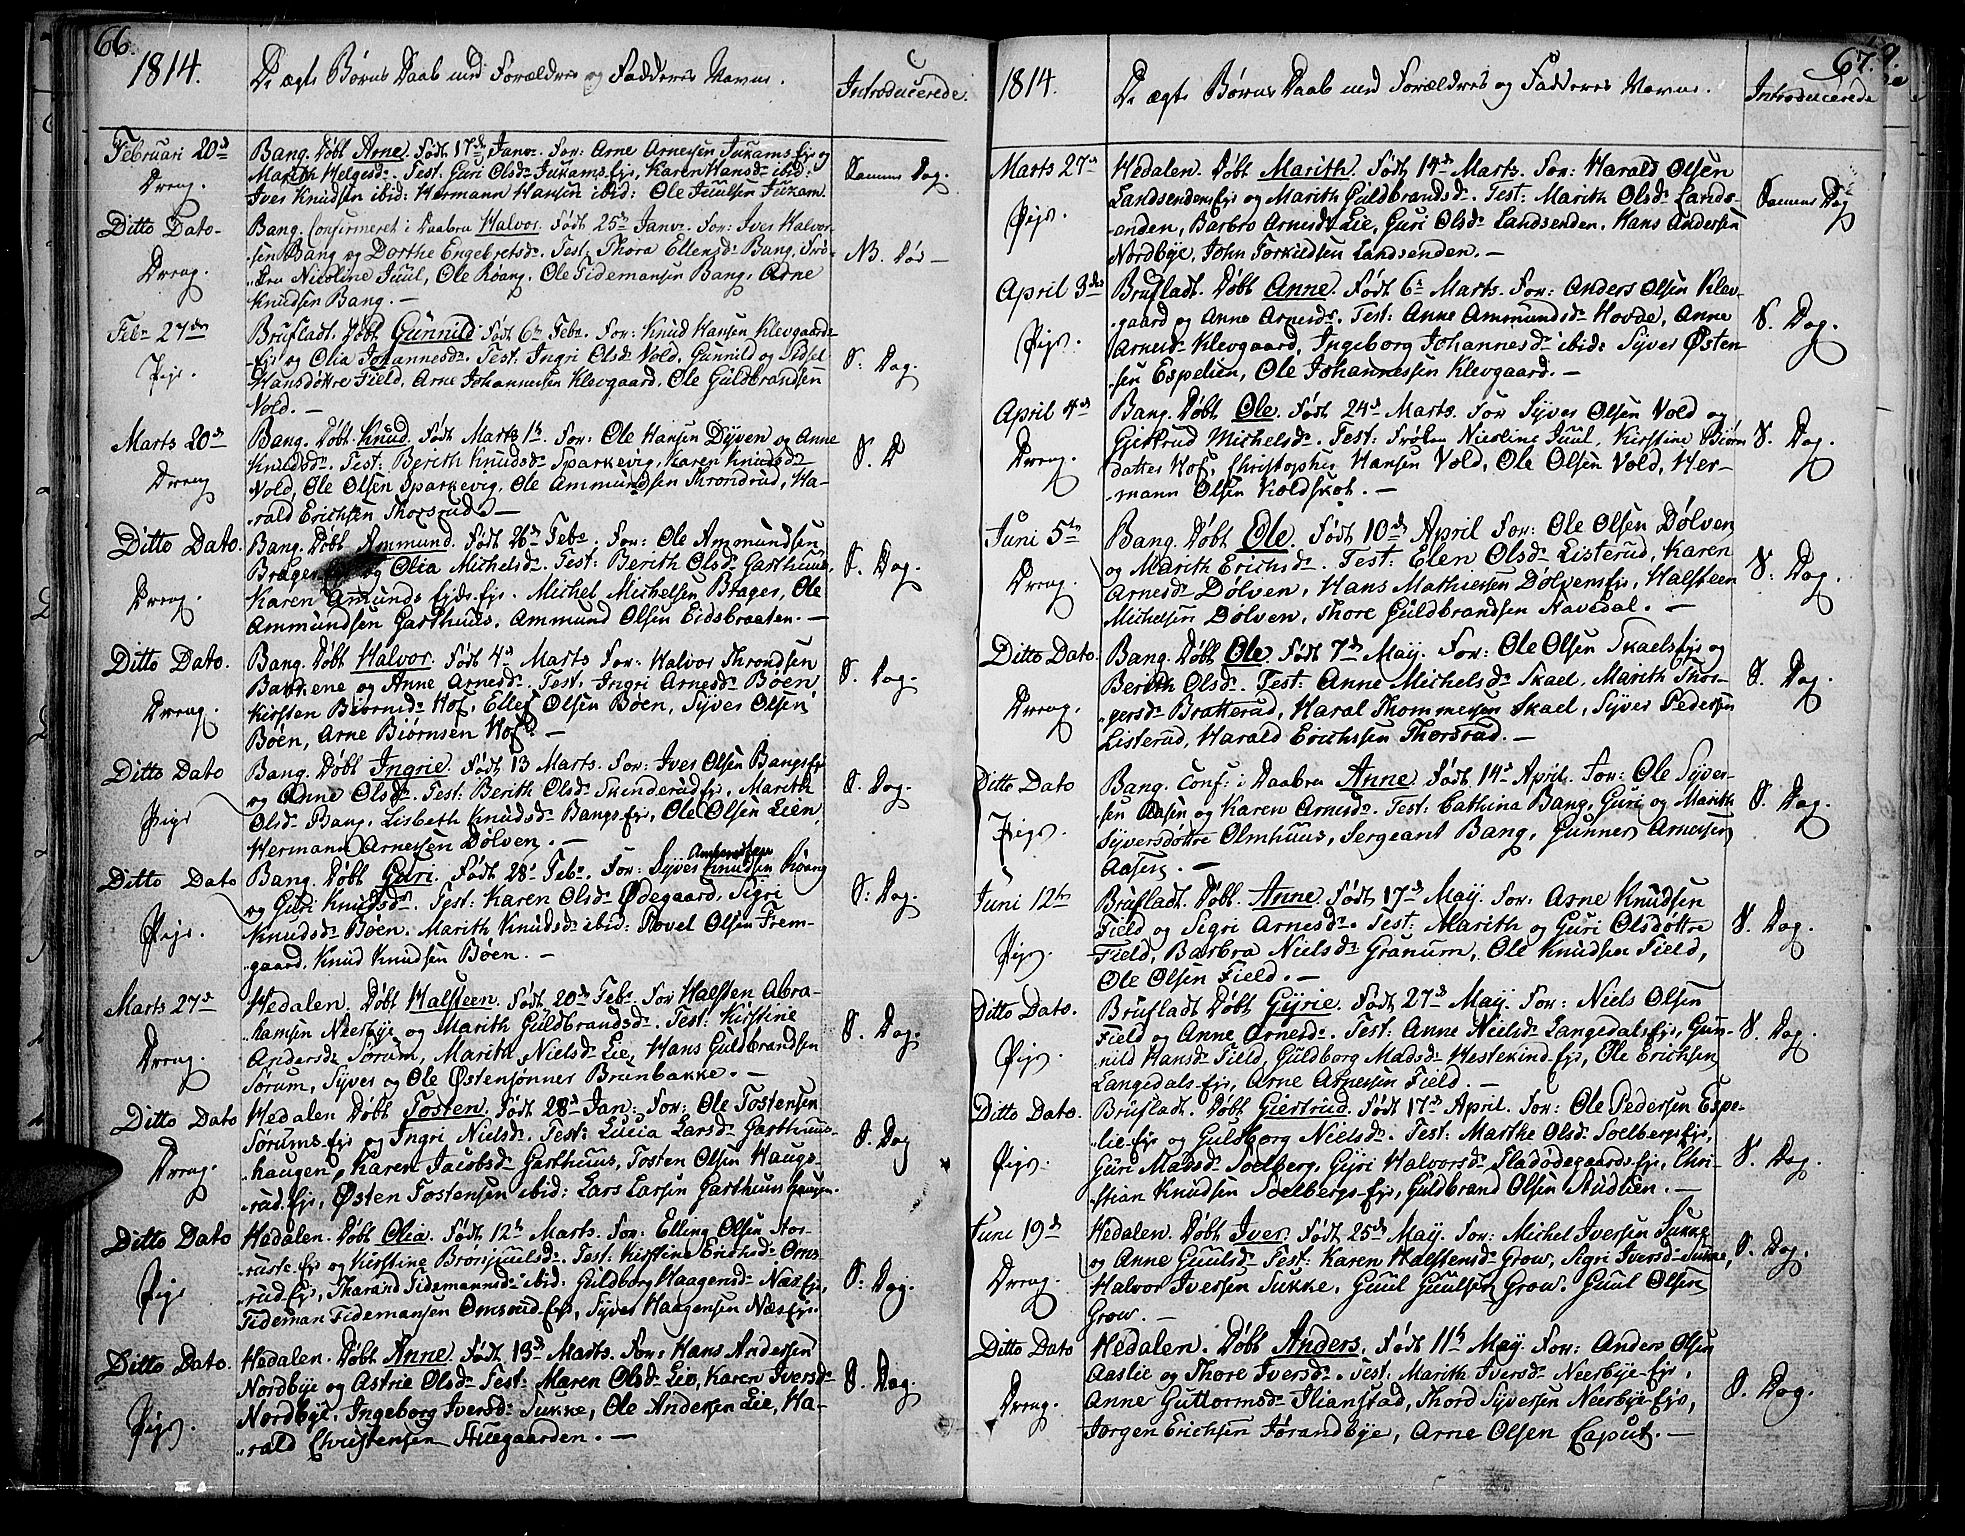 66.
1814.
De ægte Børns Daab med Forældres og Faddres Navne.
Introducerede.
Februari 20de
Dreng.
Bang. Døbt Arne. Født 17de Janv. For: Arne Arnesen Jukams Eje og
Marith Helgesdr. Test: Guri Olsdr Jukams Eje, Karen Hansdr ibid:
Iver Knudsen ibid: Hermann Hansen ibid: Ole Juulsen Jukam.
Samme Dag.
Ditto Dato.
Dreng.
Bang. Confirmeret i Daaben Halvor. Født 25de Janv. For: Iver Halvor-
sen Bang og Dorthe Engebretsdr. Test: Thora Ellensdr Bang, Frö-
ken Nicoline Juul, Ole Röang, Ole Tidemansen Bang, Arne
Knudsen Bang. —
NB. Død —
Febr 27de
Pige.
Brufladt. Døbt Gunnild. Født 6te Febr. For: Knud Hansen Klevgaards-
Eje og Olia Johannesdr. Test: Ingri Olsdr Vold, Gunnild og Sidsel
Hansdøttre Field, Arne Johannessen Klevgaard, Ole Guldbrandsen
Vold. —
S: Dag.
Marts 20de
Dreng
Bang. Døbt Knud. Født Marts 1te. For: Ole Hansen Dÿven og Anne
Knudsdr. Test: Berith Knudsdr Sparkevig, Karen Knudsdr
Vold, Ole Olsen Sparkevig, Ole Ammundsen Throndrud, Ha-
rald Erichsen Thorsrud. —
S. D
Ditto Dato.
Dreng.
Bang. Døbt Ammund. Født 26de Febr. For: Ole Ammundsen
Brager og Olia Michelsdr. Test: Berith Olsdr Garthuus,
Karen Amunds Eids Eje. Michel Michelsen Brager, Ole
Ammundsen Garthuus, Ammund Olsen Eidsbraaten. —
S. Dag.
Ditto Dato.
Dreng.
Bang. Døbt Halvor. Født 4de Marts. For: Halvor Throndsen
Bakkene og Anne Arnesdr. Test: Ingri Arnesdr Bøen
Kirsten Biørnsdr Hof, Ellef Olsen Bøen, Syver Olsen
Böen, Arne Biørnsen Hof. —
S. Dag.
Ditto Dato
Pige
Bang. Døbt Ingrie. Født 13 Marts. For: Iver Olsen Bangs Eje
og Anne Olsdr. Test: Berith Olsdr Skinderud Eje, Marith
Olsdr Bang, Lisbeth Knudsdr Bangs Eje, Ole Olsen Lien,
Hermann Arnesen Dölven. —
S. Dag.
Ditto Dato
Pige.
Ambersen
Bang. Døbt Guri. Født 28de Febr. For: Syver Knudsen Röang
og Guri Knudsdr. Test: Karen Olsdr Ødegaard, Sigri
Knudsdr Böen. Marith Knudsdr ibid: Povel Olsen Frem-
gaard. Knud Knudsen Böen. —
S: Dag.
Marts 27de
Dreng.
Hedalen. Døbt Halsteen. Født 20de Febr. For Halsten Abra-
hamsen Neerbÿe og Marith Guldbrandsdr. Test: Kirstine
Andersdr Sörum, Marith Nielsdr Lie, Hans Guldbrandsen
Sörum, Syver og Ole Østensønner Brunbakke. —
S. Dag.
Ditto Dato
Dreng.
Hedalen Døbt Tosten. Født 28de Jan. For: Ole Tostensen
Sörums Eje og Ingri Nielsdr. Test: Lucia Larsdr Garthuus-
haugen, Karen Jacobsdr Garthuus, Tosten Olsen Haugs-
rud Eje, Østen Tostensen ibid: Lars Larsen Garthuus haugen.
S. Dag
Ditto Dato
Pige
Hedalen. Døbt Olia. Født 12te Marts. For: Elling Olsen Stor-
ruste Eje og Kirstine Brorijuulsdr. Test: Kirstine Erichsdr Oms-
rud Eje, Tharand Tidemannsdr ibid: Guldborg Haagensdr Næs Eje,
Tideman Tidemansen Omsrud-Eje, Syver Haagensen Næs Eje.
S: Dag.
Ditto Dato.
Pige.
Hedalen. Døbt Anne. Født 13de Marts. For: Hans Andersen
Nordbÿe og Astrie Olsdr. Test: Maren Olsdr Lie, Karen Iversdr
Nordbÿe, Ingeborg Iversdr Sukke, Ole Andersen Lie, Ha-
rald Christensen Stuegaarden. —
S. Dag.
67.
1814.
De ægte Børns Daab med Forældres og Faddres Navne.
Introducerede
Marts 27de
Pige.
Hedalen. Døbt Marith. Født 14de Marts. For: Harald Olsen
Landsendens Eje og Marith Guldbrandsdr. Test: Marith Olsdr Lands-
enden, Barbro Arnesdr Lie, Guri Olsdr Landsenden. Hans Andersen
Nordbÿe, John Torkildsen Landsenden. —
Samme Dag
April 3die
Pige.
Brufladt. Døbt Anne. Født 6te Marts. For: Anders Olsen Klev-
gaard og Anne Arnesdr. Test: Anne Ammundsdr Hovde, Anne
Arnesdr Klevgaard, Ingeborg Johannesdr ibid: Syver Østen-
sen Espelien, Ole Johannessen Klevgaard. —
S. Dag.
April 4de
Dreng.
Bang. Døbt Ole. Født 24de Marts. For Syver Olsen Vold og
Giertrud Michelsdr. Test: Frøken Nicoline Juul, Kirstine Biørn
datter Hof, Christopher Hansen Vold, Ole Olsen Vold, Her-
mann Olsen Koldskot. —
S. Dag.
Juni 5te
Dreng.
Bang. Døbt Ole. Født 10de April For: Ole Olsen Dølven,
og Marith Erichsdr. Test: Elen Olsdr Listerud, Karen
Arnesdr Dølven, Hans Mathiesen Dølvens Eje, Halsteen
Michelsen Dølven, Thore Guldbrandsen Havedal. —
S. Dag.
Ditto Dato.
Dreng.
Bang. Døbt Ole. Født 7de May. For: Ole Olsen Skaels Eje og
Berith Olsdr. Test: Anne Michelsdr Skael, Marith Thor-
gersdr Bratterud, Haral Thommesen Skael, Syver Pedersen
Listerud, Harald Erichssen Thorsrud. —
S. Dag.
Ditto Dato
Pige.
Bang. Conf: i Daaben Anne. Født 14de April. For: Ole Syver-
sen Aasen og Karen Arnesdr. Test: Cathrina Bang, Guri og Marith
Syversdøttre Olmhuus, Sergeant Bang, Gunner Arnesen
Aasen. —
S. Dag.
Juni 12te
Pige.
Brufladt. Døbt. Anne. Født 17de May. For: Arne Knudsen
Field og Sigri Arnesdr. Test: Marith og Guri Olsdøttre
Field, Barbra Nielsdr Granum, Ole Knudsen Field,
Ole Olsen Field. —
S. Dag.
Ditto Dato.
Pige.
Brufladt Døbt Gÿrie. Født 27de Maÿ. For: Niels Olsen
Field og Anne Arnesdr. Test: Anne Nielsdr Langedals Eje, Gun-
nild Hansdr Field, Guldborg Madsdr Hestekind-Eje, Ole Erichsen
Langedals-Eje, Arne Arnesen Field. —
S. Dag.
Ditto Dato.
Pige.
Brufladt. Døbt Giertrud. Født 17de April. For: Ole Pedersen Espe-
lie-Eje og Guldborg Nielsdr. Test: Marthe Olsdr Soelbergs Eje,
Guri Madsdr Soelberg, Gÿri Halvorsdr Fladødegaards Eje, Chri-
stian Knudsen Soelbergs-Eje, Guldbrand Olsen Studlien. —
S. Dag.
Juni 19de
Dreng.
Hedalen. Døbt Iver. Født 25de Maÿ. For: Michel Iversen Sukke
og Anne Guulsdr. Test: Karen Halstensdr Grow, Sigri Iversdr Sukke,
Halvor Iversen Sukke, Guul Guulsen Grow. Guul Olsen
Grow. —
S. Dag.
Ditto Dato
Dreng.
Hedalen. Døbt Anders. Født 11te May. For: Anders Olsen
Aaslie og Thore Iversdr. Test: Marith Iversdr Neerbÿe-Eje,
Anne Guttormsdr Ilianstad, Thord Syversen Neerbÿe-Eje,
Jørgen Erichsen Jørandbÿe, Arne Olsen Caput. —
S. Dag.